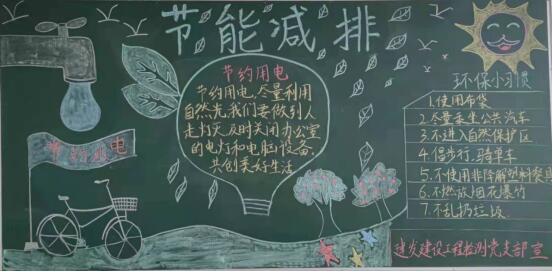 节能减排
节约用电
节约用电,尽量利用
自然光,我们要做到人
走灯灭,及时关闭办公室
的电灯和电脑设备,
共创美好生活
节约水电
环保小习惯
1.使用布袋
2.尽量乘坐公共汽车
3.不进入自然保护区
4.倡步行,骑单车
5.不使用非降解塑料餐具
6.不燃放烟花爆竹
7.不乱扔垃圾
建发建设工程检测党支部宣